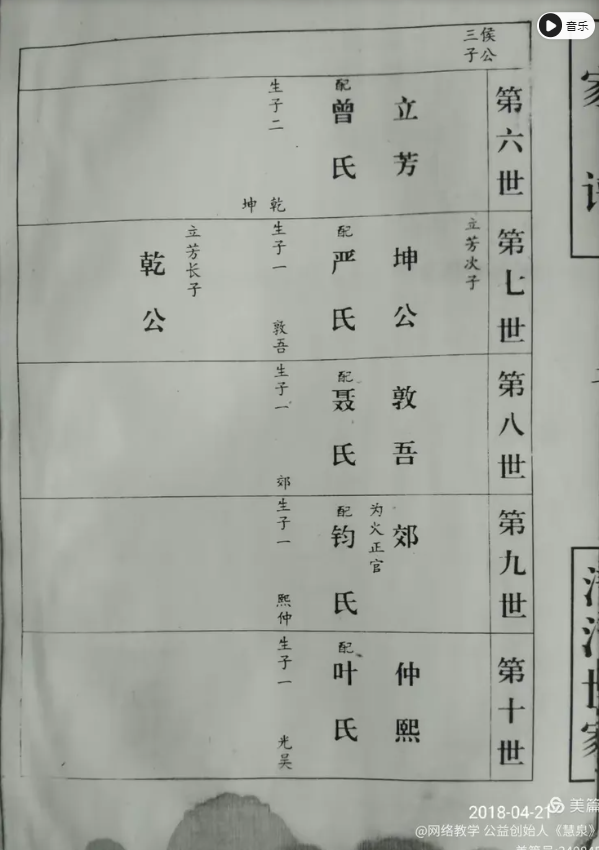 音乐
侯公
三子
第六世
立芳
配
曾氏
生子二
乾
坤
第七世
立芳次子
坤公
配
严氏
生子一
敦吾
立芳长子
乾公
第八世
敦吾
配
聂氏
生子一
郊
第九世
郊
为火正官
配
钧氏
生子一
熙仲
第十世
仲熙
配
叶氏
生子一
光昊
2018-04-21
美篇
@网络教学 公益创始人《慧泉》